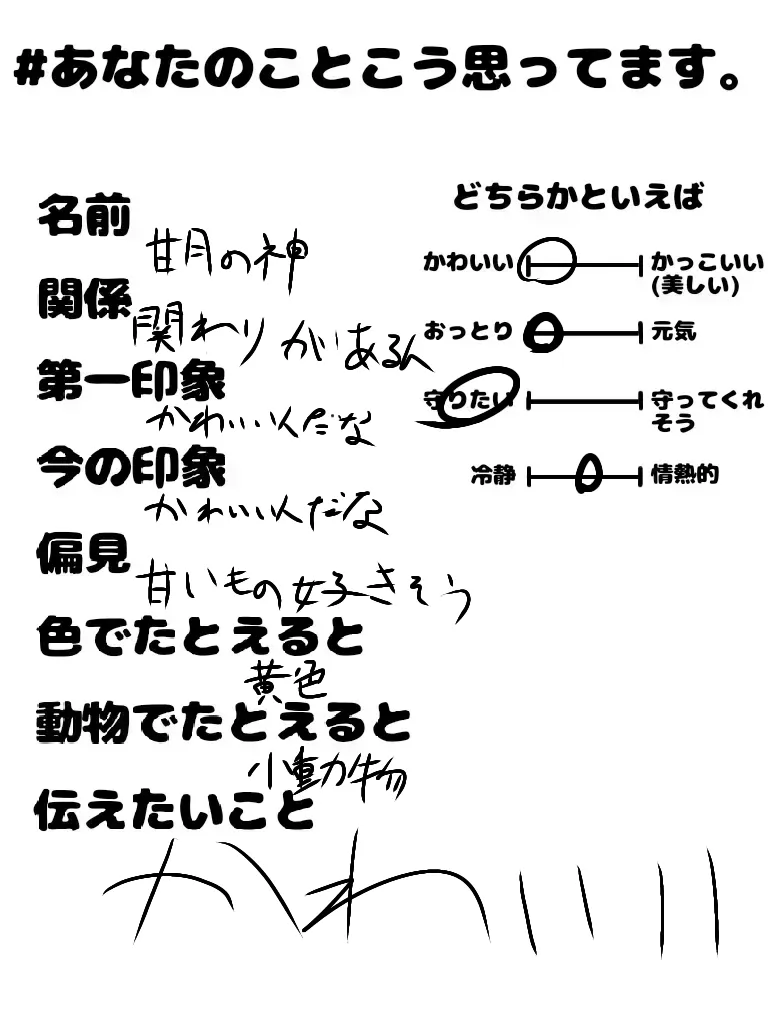 #あなたのことこう思ってます。
名前
甘月の神
関係
関わりがいあるん
第一印象
かわいい人だな
今の印象
かわいい人だな
偏見
甘いもの好きそう
色でたとえると
黄色
動物でたとえると
小動物
伝えたいこと
かわいい
どちらかといえば
かわいい かっこいい
(美しい)
おっとり 元気
守りたい 守ってくれ
そう
冷静 情熱的